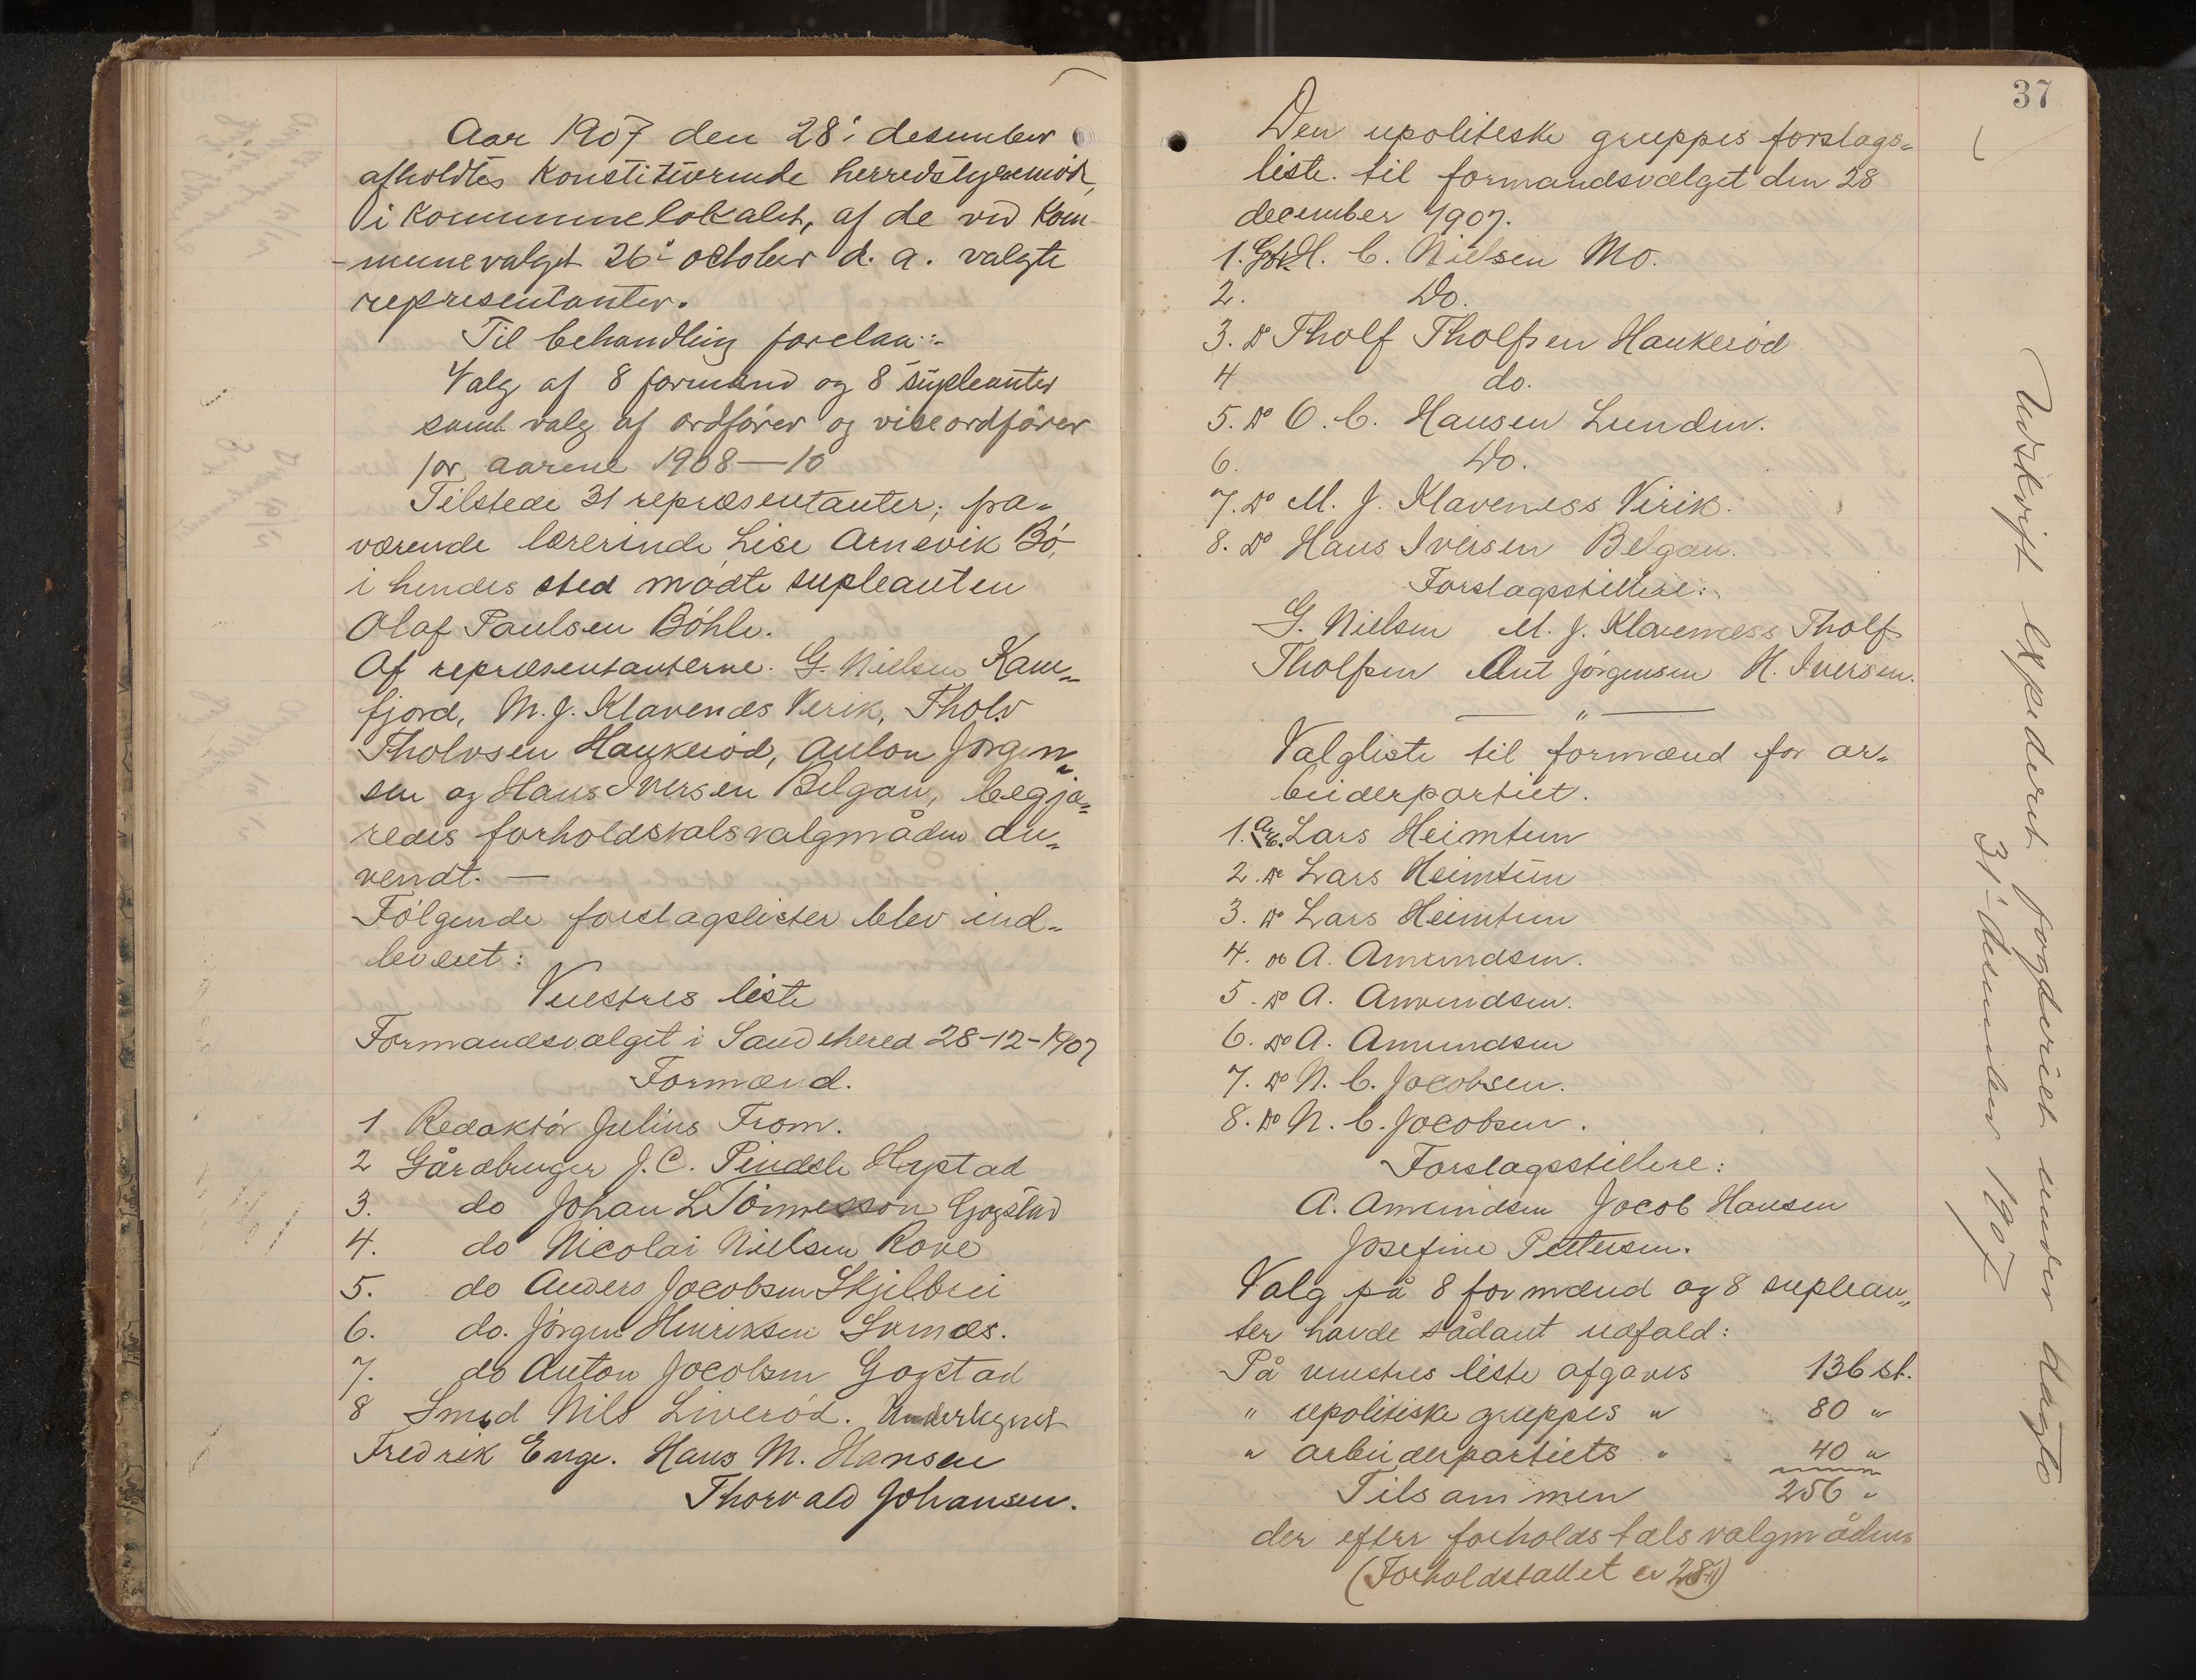 Aar 1907 den 28' desember
afholdtes Konstituerende herredstyremöde,
i Kommunelokalet, af de ved Kom-
-munevalget 26' october d. a. valgte
representanter.
Til behandling forelaa:
Valg af 8 formænd og 8 supleanter
samt valg af ordförer og viseordförer
for aarene 1908—10
Tilstede 31 repræsentanter; fra=
værende lærerinde Lise Arnevik Bö,
i hendes sted mödte supleanten
Olaf Paulsen Böhle.
Af repræsentanterne. G. Nielsen Kam=
fjord, M. J. Klavenæs Verik, Tholv
Tholvsen Haukeröd, Anton Jörgen=
sen og Hans Iversen Belgau, begjæ=
redes forholdstalsvalgmåden an=
vendt. —
Følgende forslagslister blev ind=
leveret:
Venstres liste
Formandsvalget i Sandehered 28-12-1907
Formænd.
1 Redaktör Julius From.
2 Gårdbruger J. C. Pindsle Hystad
3. do Johan L Tönnesson Gogstad
4. do Nicolai Nielsen Rove
5. do Anders Jacobsen Skjelbrei
6. do. Jörgen Henriksen Svines.
7. do Anton Jacobsen Gogstad
8 Smed Nils Liveröd. Undertegnet
Fredrik Enge. Hans M. Hansen
Thorvald Johansen.
37
Den upolitiske gruppes forslags=
liste. til formandsvalget den 28
december 1907.
1. Gbr. H. C. Nielsen Mo.
2. Do.
3. Do Tholf Tholfsen Haukeröd
4 do.
5. Do O. C. Hansen Lunden.
6. Do.
7. Do M. J. Klaveness Virik.
8. Do Hans Iversen Belgau.
Forslagsstillere:
G. Nielsen M. J. Klaveness Tholf
Tholfsen Ant Jörgensen H. Iversen.
— " —
Valgliste til formænd for ar=
beiderpartiet.
1. Arb. Lars Heimtun
2. Do Lars Heimtun
3. Do Lars Heimtun
4. Do A. Amundsen.
5. Do A. Amundsen.
6. Do A. Amundsen
7. Do N. C. Jacobsen.
8. Do N. C. Jacobsen.
Forslagsstillere:
A. Amundsen Jacob Hansen
Josefine Pettersen.
Valg på 8 formænd og 8 suplean=
ter havde sådant udfald:
På venstres liste afgaves 136 st.
" upolitiske gruppes " 80 "
" arbeiderpartiets " 40 "
Tilsammen 256 "
der efter forholdstalsvalgmåden
(Forholdstallet er 28 4/9)
Udskrift expederet fogderiet under dagto
31' desember 1907